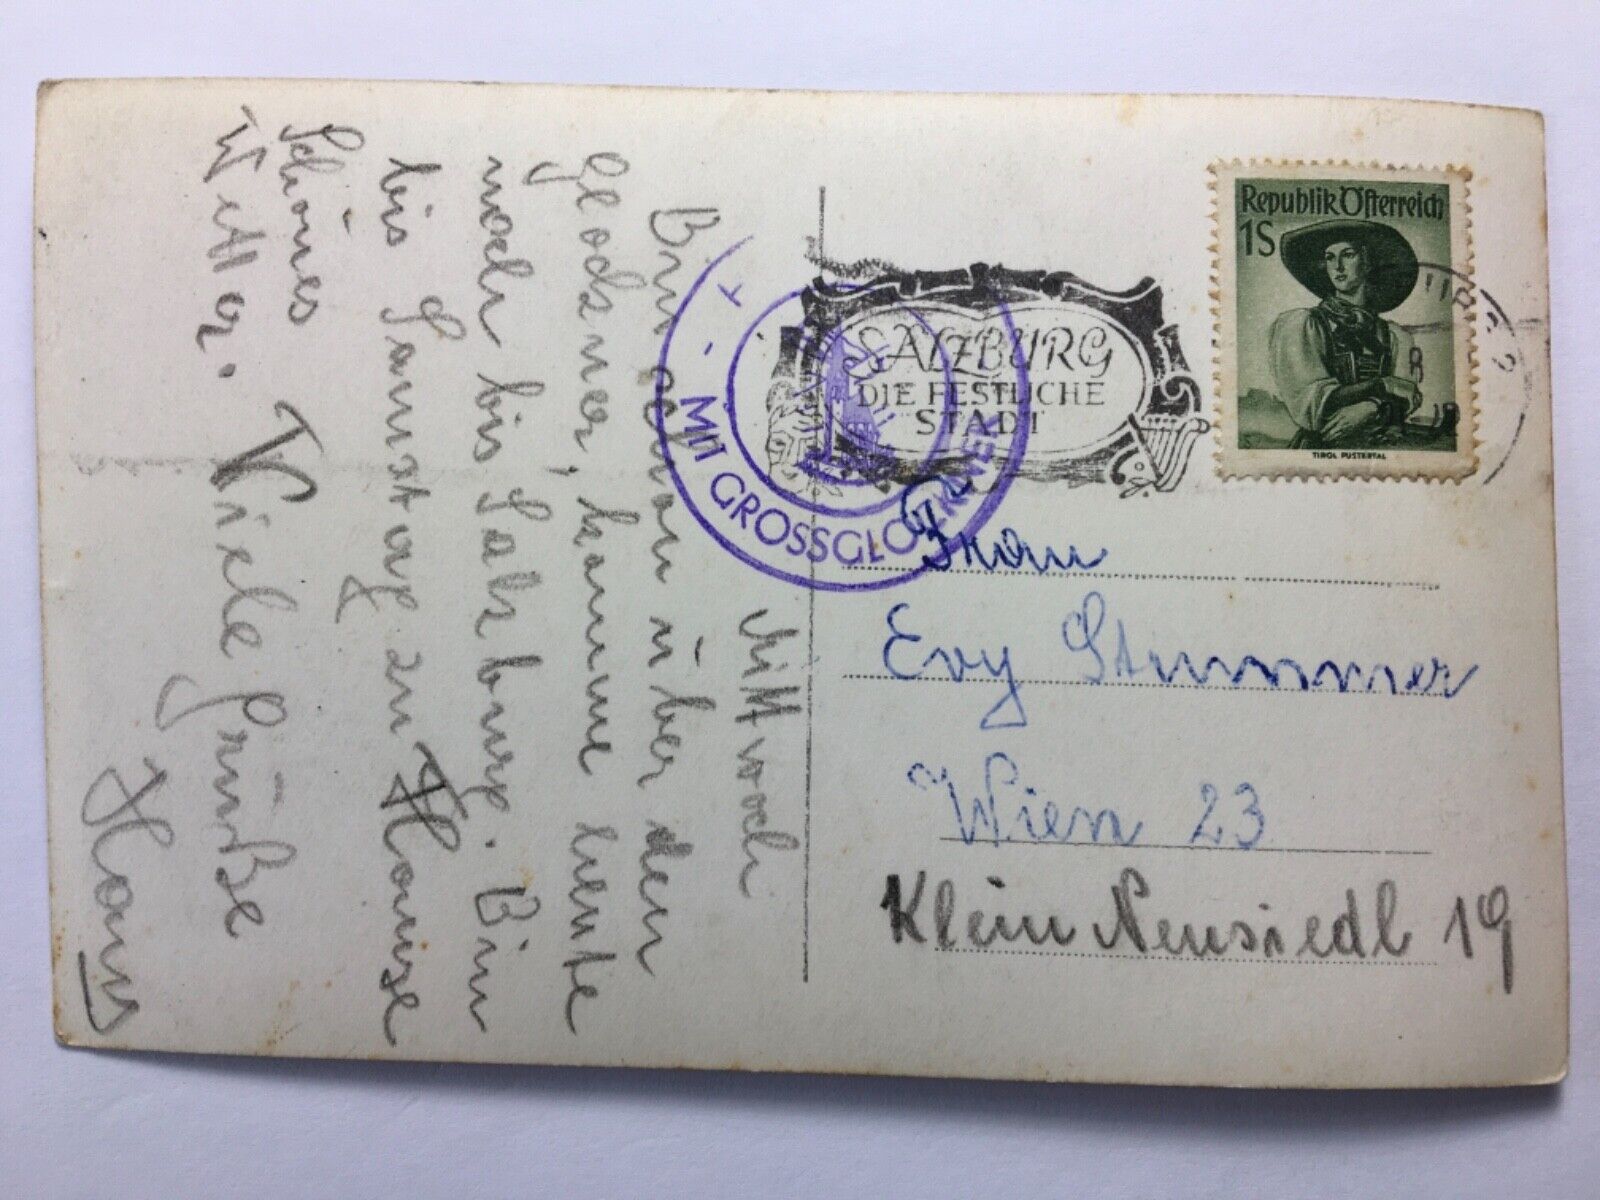 Mittwoch
Bin schon über den
Glocksner, komme heute
noch bis Salzburg. Bin
bis Samstag zu Hause
Schönes
Wetter. Viele Grüße
Hans
MIT GROSSGLOCKNER
SALZBURG
DIE FESTLICHE
STADT
Republik Österreich
1S
TIROL PUSTERTAL
Frau
Evy Stummer
Wien 23
Klein Neusiedl 19